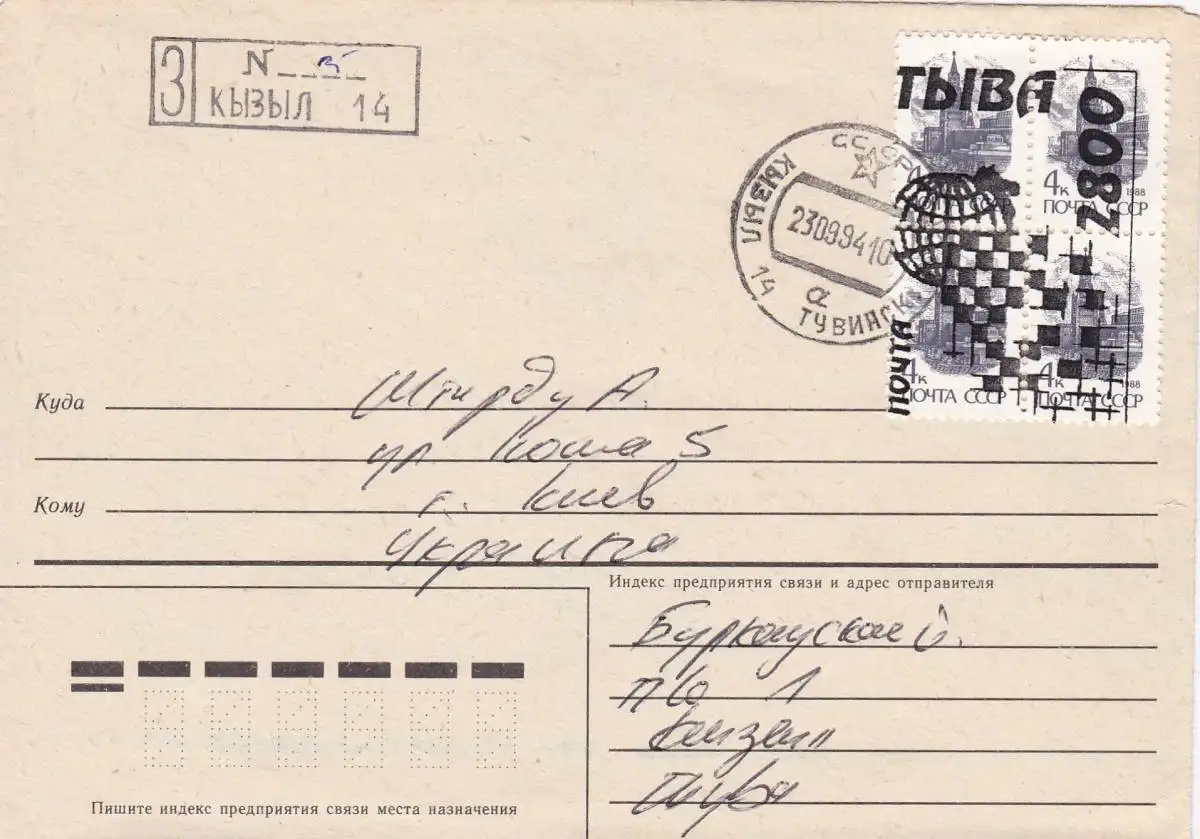 З N 5
КЫЗЫЛ 14
ТЫВА
Z800
ПОЧТА
4к 1988
ПОЧТА СССР
4к 1988
ПОЧТА СССР
4к
ПОЧТА СССР
4к 1988
ПОЧТА СССР
СССР
КЫЗЫЛ 14
23 09 94 10
α
ТУВИНСК
Куда
ул Коша 5
Кому г. Киев
Украина
Индекс предприятия связи и адрес отправителя
1
Кызыл
Тува
Пишите индекс предприятия связи места назначения